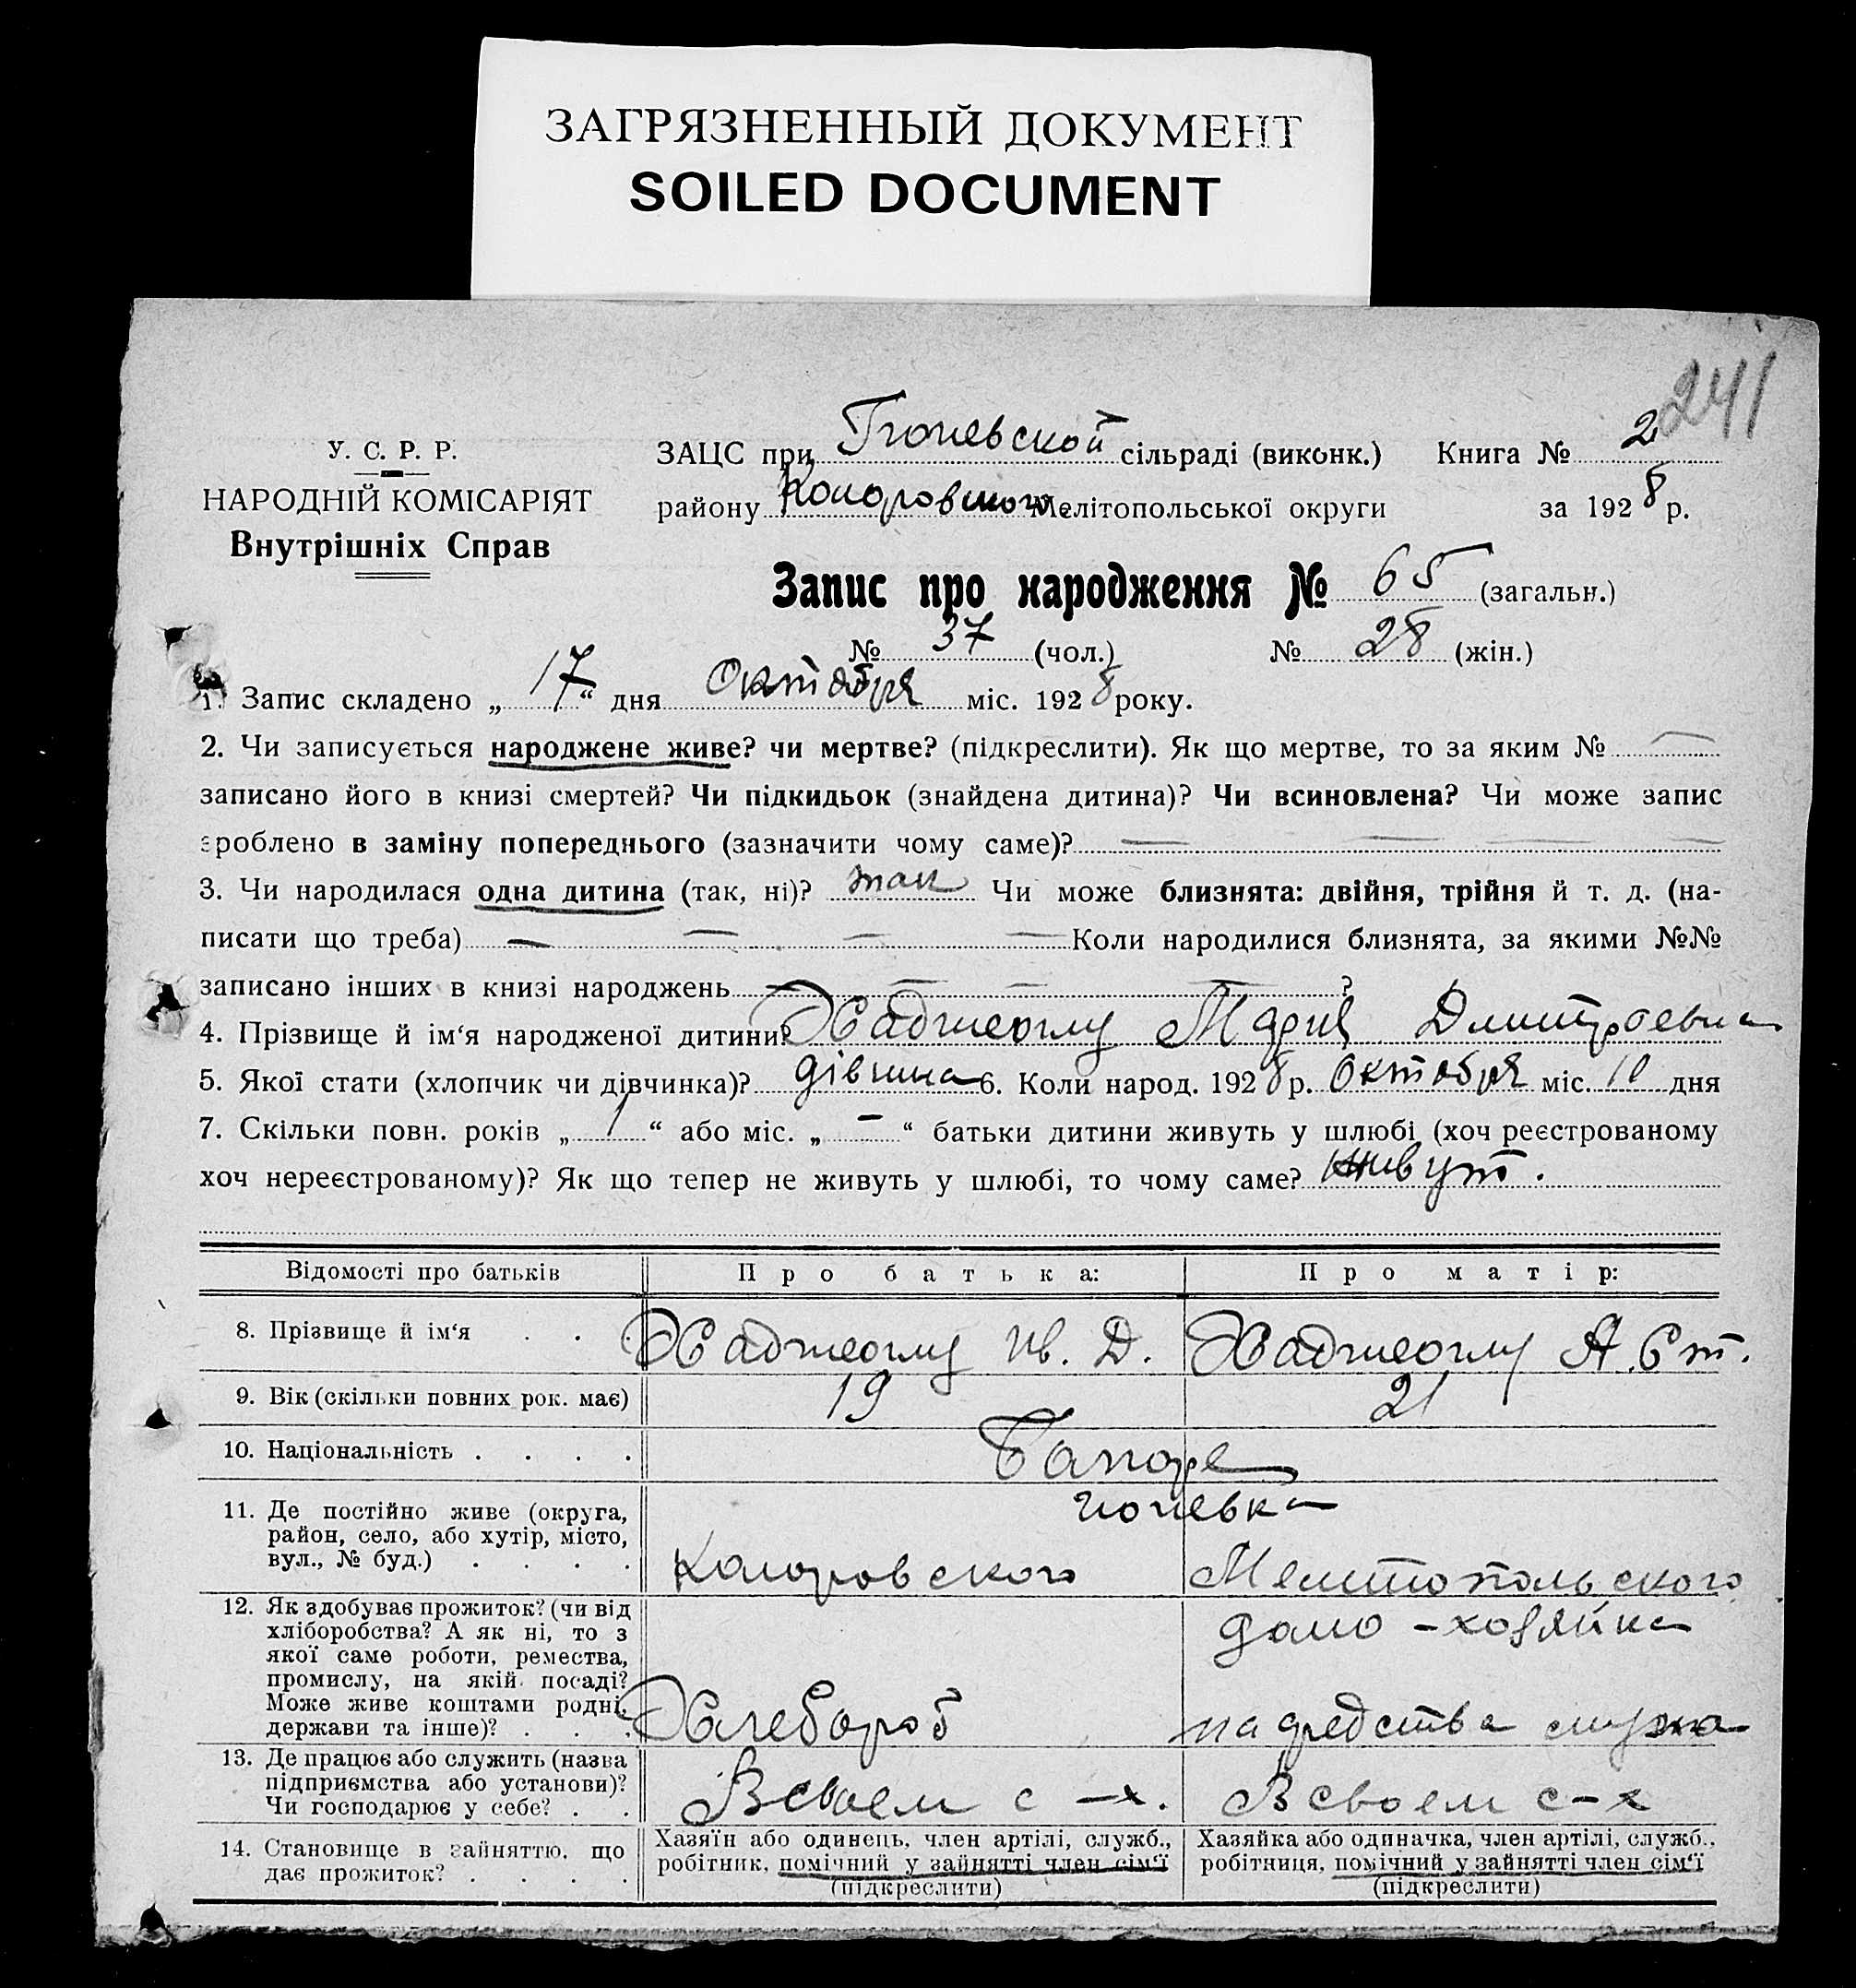 ЗАГРЯЗНЕННЫЙ ДОКУМЕНТ
SOILED DOCUMENT
241
У. С. Р. Р.
НАРОДНІЙ КОМІСАРІЯТ
Внутрішніх Справ
ЗАЦС при сільраді (виконк.) Книга № 2
району Мелітопольської округи за 1928 р.
Запис про народження № 65 (загальн.)
№ 37 (чол.) № 28 (жін.)
1. Запис складено „ 17 “ дня Октября міс. 1928 року.
2. Чи записується народжене живе? чи мертве? (підкреслити). Як що мертве, то за яким № —
записано його в книзі смертей? Чи підкидьок (знайдена дитина)? Чи всиновлена? Чи може запис
зроблено в заміну попереднього (зазначити чому саме)? — — — —
3. Чи народилася одна дитина (так, ні)? так Чи може близнята: двійня, трійня й т. д. (на-
писати що треба) — — — — Коли народилися близнята, за якими №№
записано інших в книзі народжень — — — — ?
4. Прізвище й ім‘я народженої дитини? Хаджеоглу Мария Дмитроевна
5. Якої стати (хлопчик чи дівчинка)? 6. Коли народ. 1928 р. Октября міс. 10 дня
7. Скільки повн. років „ 1 “ або міс. „ — “ батьки дитини живуть у шлюбі (хоч реєстрованому
хоч нереєстрованому)? Як що тепер не живуть у шлюбі, то чому саме? живут.
Відомості про батьків Про батька: Про матір:
8. Прізвище й ім‘я . . . Хаджеоглу Ив. Д. Хаджеоглу А. Ст.
9. Вік (скільки повних рок. має) 19 21
10. Національність . . . . Болгаре
11. Де постійно живе (округа,
район, село, або хутір, місто,
вул., № буд.) . . . .
Мелитопольского
12. Як здобуває прожиток? (чи від
хліборобства? А як ні, то з
якої саме роботи, ремества,
промислу, на якій посаді?
Може живе коштами родні,
держави та інше)? . . .
домо-хозяйка
Хлебороб на средства мужа
13. Де працює або служить (назва
підприємства або установи)?
Чи господарює у себе? . .
В своем с-х. В своем с-х
14. Становище в зайняттю, що
дає прожиток? . . . .
Хазяїн або одинець, член артілі, служб.,
робітник, помічний у зайнятті член сім‘ї
(підкреслити)
Хазяйка або одиначка, член артілі, служб.,
робітниця, помічний у зайнятті член сім‘ї
(підкреслити)